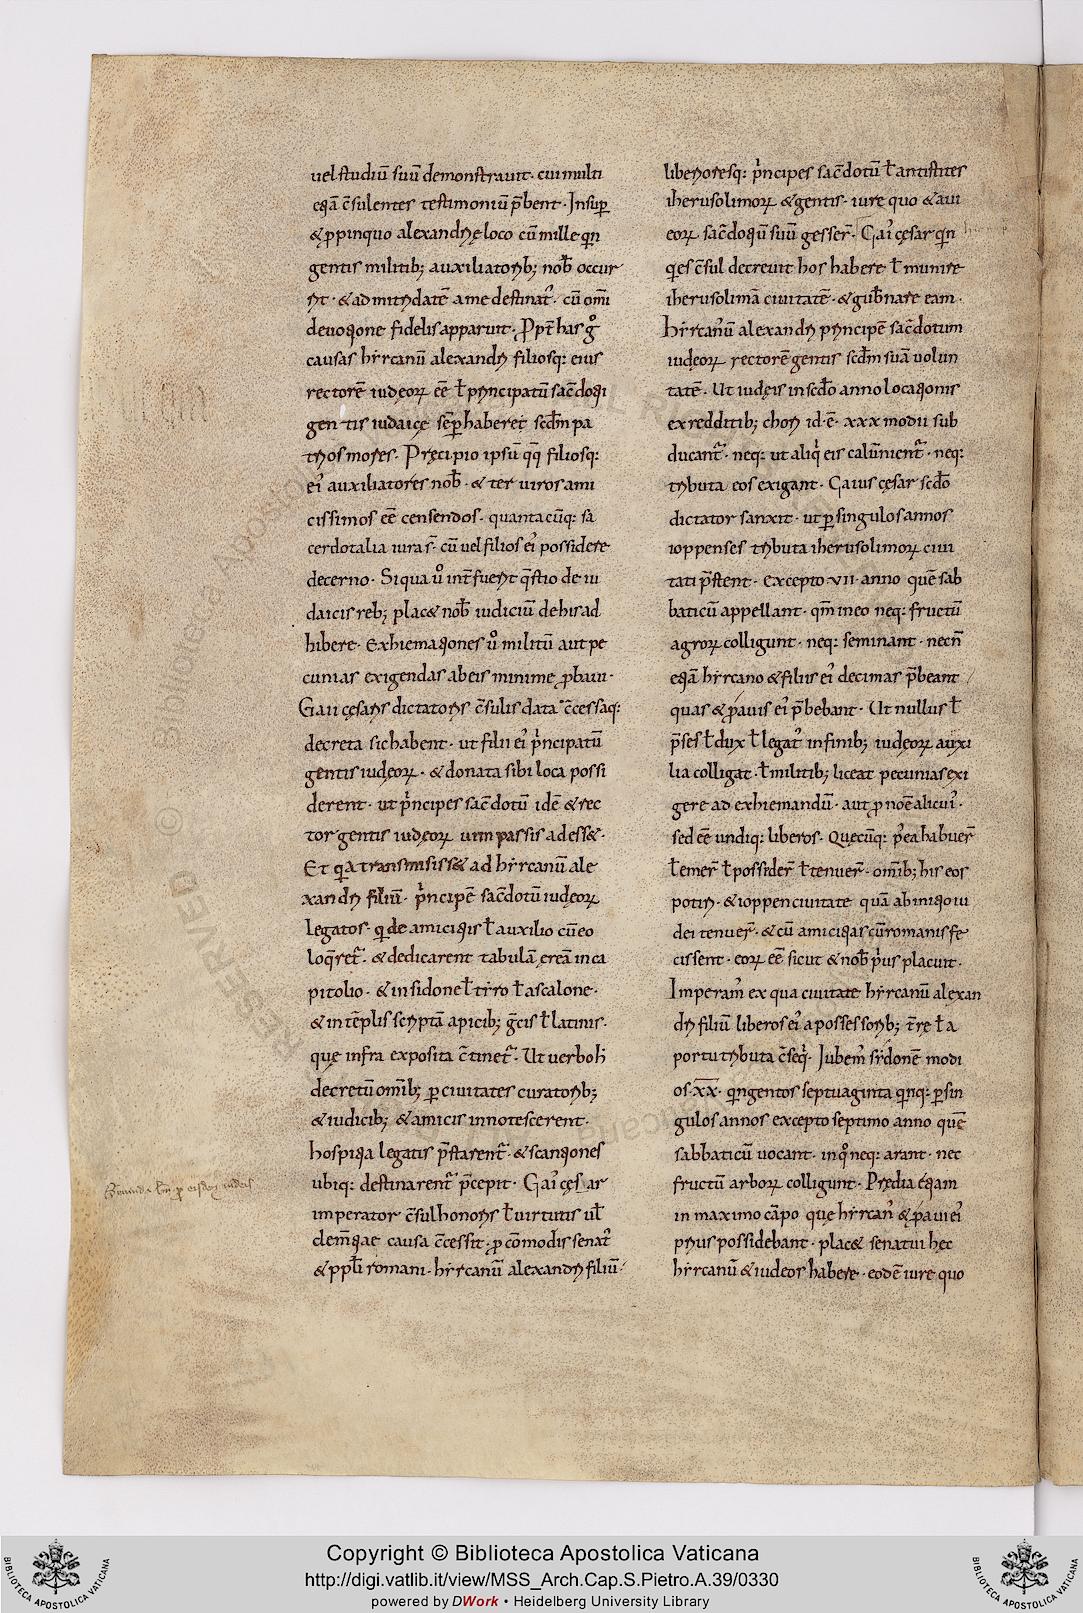 uel studiū suū demonstrauit· cui multi
eꝗā c̄sulentes testimoniū p̄bent· Insup̱
& ꝓpinquo alexandrię loco cū mille qin
gentis militib; auxiliatorib; nob̄ occur
rit· & ad mitridatē a me destinat᷒· cū om̄i
deuotione fidelis apparuit· Ꝓpt̄ has g̊
causas hircanū alexandri filiosq: eius
rectorē iudęoꝝ eē ł principatū sac̄doti
gen tis iudaicę semp̱ haberet scd̄m pa
trios mores· Pręcipio ipsū qq̄ filiosq:
ei᷒ auxiliatores nob̄· & ter uiros ami
cissimos eē censendos· quantacūq: sa
cerdotalia iura s̄· cū uel filios ei᷒ possidere
decerno· Si qua ů int̄fuerit q̄stio de iu
daicis reb; plac& nob̄ iudiciū de his ad
hibere· Exhiemationes ů militū aut pe
cunias exigendas ab eis minime ꝓbaui·
Gaii cęsaris dictatoris c̄sulis data c̄cessaq:
decreta sic habent· ut filii ei᷒ p'ncipatū
gentis iudęoꝝ· & donata sibi loca possi
derent· ut p'ncipes sac̄dotū idē & rec
tor gentis iudęoꝝ uim passis adess&·
Et ꝗa transmisiss& ad hircanū ale
xandri filiū· p'ncipē sac̄dotū iudęoꝝ
legatos· ꝗ de amicitiis ł auxilio cū eo
loq̄ret᷒· & dedicarent tabulā ęreā in ca
pitolio· & in sidone ł tiro ł ascalone·
& in tēplis scriptā apicib; ḡcis ł latinis·
quę infra exposita c̄tinet᷒· Ut uerbo h̄
decretū omīb; ꝑ ciuitates curatorib;
& iudicib; & amicis innotescerent·
hospitia legatis p̄starent᷒· & scantiones
ubiq: destinarent᷒ p̄cepit· Gai᷒ cęsar
imperator c̄sul honoris ł uirtutis ul̄
clem̄tiae causa c̄cessit· ꝓ cōmodis senat᷒
& ppl̄i romani· hircanū alexandri filiū·
liberioresq: p'ncipes sac̄dotū ł antistites
iherusolimoꝝ & gentis· iure quo & aui
eoꝝ sac̄dotiū suū gesser̄· Gai᷒ cęsar qin
ꝗes c̄sul decreuit hos habere ł munire
iherusolimā ciuitatē· & gub̄nare eam·
hircanū alexandri principē sac̄dotum
iudęoꝝ rectorē gentis scd̄m suā uolun
tatē· Ut iudęis in scd̄o anno locationis
ex redditib; chori id·ē· xxx modii sub
ducant᷒· neq: ut aliꝗ eis calūnient᷒· neq:
tributa eos exigant· Gaius cęsar scd̄o
dictator sanxit· ut ꝑ singulos annos
ioppenses tributa iherusolimoꝝ ciui
tati p̄stent· excepto ·vii· anno quē sab
baticū appellant· qm̄ in eo neq: fructū
agroꝝ colligunt· neq: seminant· necn̄
eꝗā hircano & filiis ei᷒ decimas p̄beant
quas & ꝓauis ei᷒ p̄bebant· Ut nullus ł
p̄ses ł dux ł legat᷒ in finib; iudęoꝝ auxi
lia colligat· ł militib; liceat pecunias exi
gere ad exhiemandū· aut ꝓ noē alicui᷒·
sed eē undiq: liberos· Quęcūq: p'ea habuer̄
ł emer̄ ł possider̄ ł tenuer̄· omīb; his eos
potiri· & ioppen ciuitate quā ab initio iu
dei tenuer̄· & cū amicitias cū romanis fe
cissent· eoꝝ eē sicut & nob̄ p'us placuit·
Imperam᷒ ex qua ciuitate hircanū alexan
dri filiū liberos ei᷒ a possessorib; t̄rę ł a
portu tributa c̄seꝗ· Jubem᷒ sidonē modi
os ·xx· qingentos septuaginta qinq: ꝑ sin
gulos annos excepto septimo anno quē
sabbaticū uocant· in q̊ neq: arant· nec
fructū arboꝝ colligunt· Prędia eꝗam
in maximo cāpo quę hircan᷒ & ꝓaui ei᷒
prius possidebant· plac& senatui hęc
hircanū & iudeos habere· eodē iure quo
Copyright © Biblioteca Apostolica Vaticana
http://digi.vatlib.it/view/MSS_Arch.Cap.S.Pietro.A.39/0330
powered by DWork • Heidelberg University Library
BIBLIOTECA APOSTOLICA VATICANA
BIBLIOTECA APOSTOLICA VATICANA